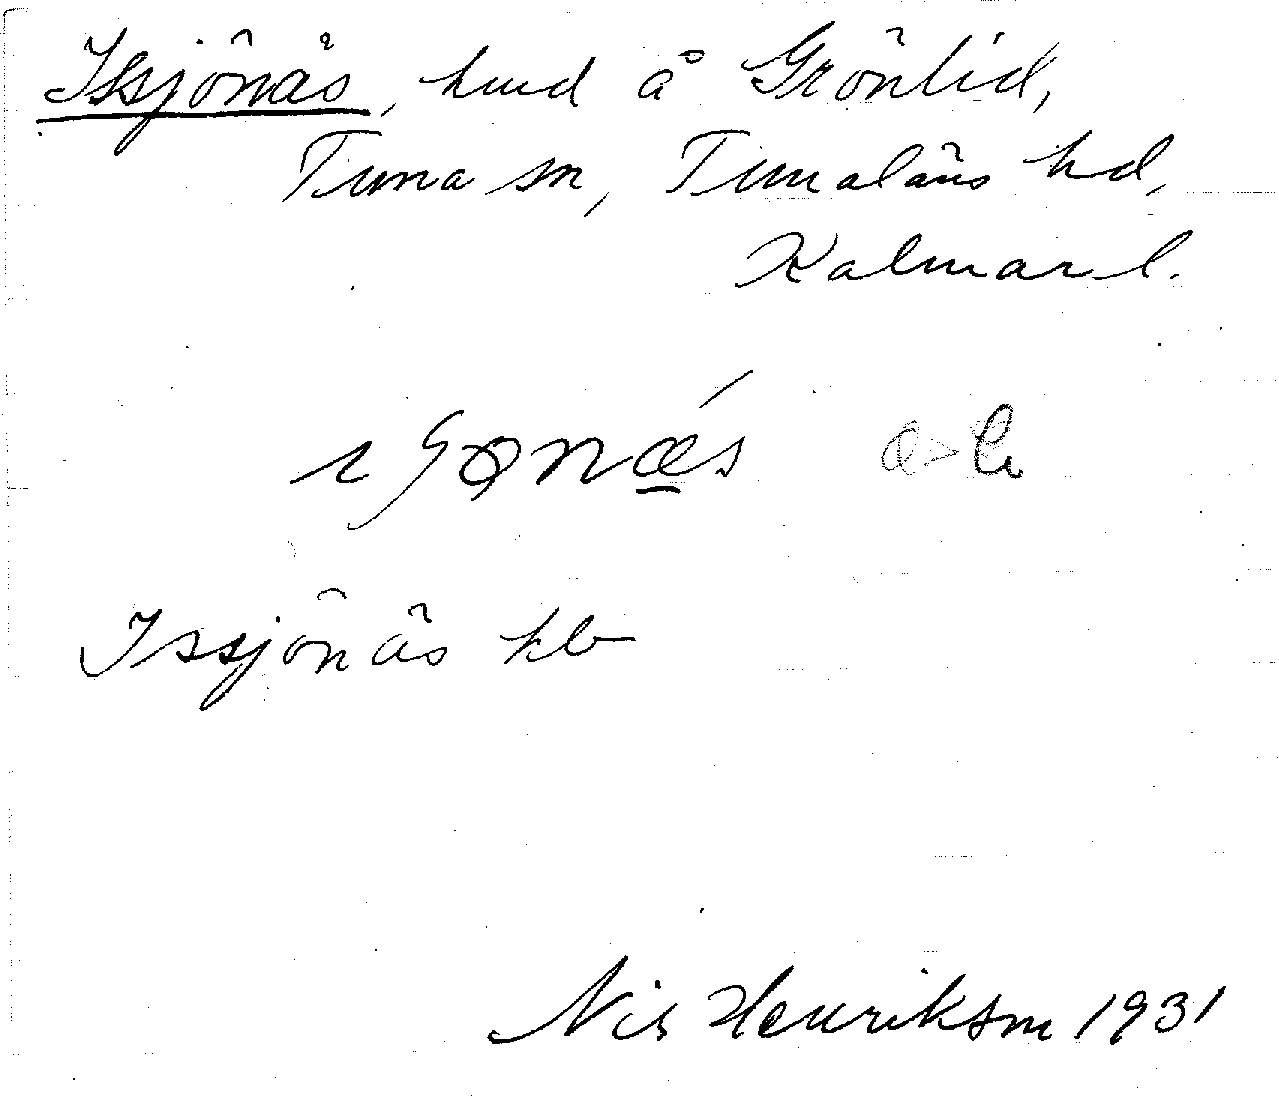 Issjönäs, hmd å Grönlid,
Tuna sn, Tunaläns hd,
Kalmar l.
Issjönäs kb
Nils Henriksson 1931